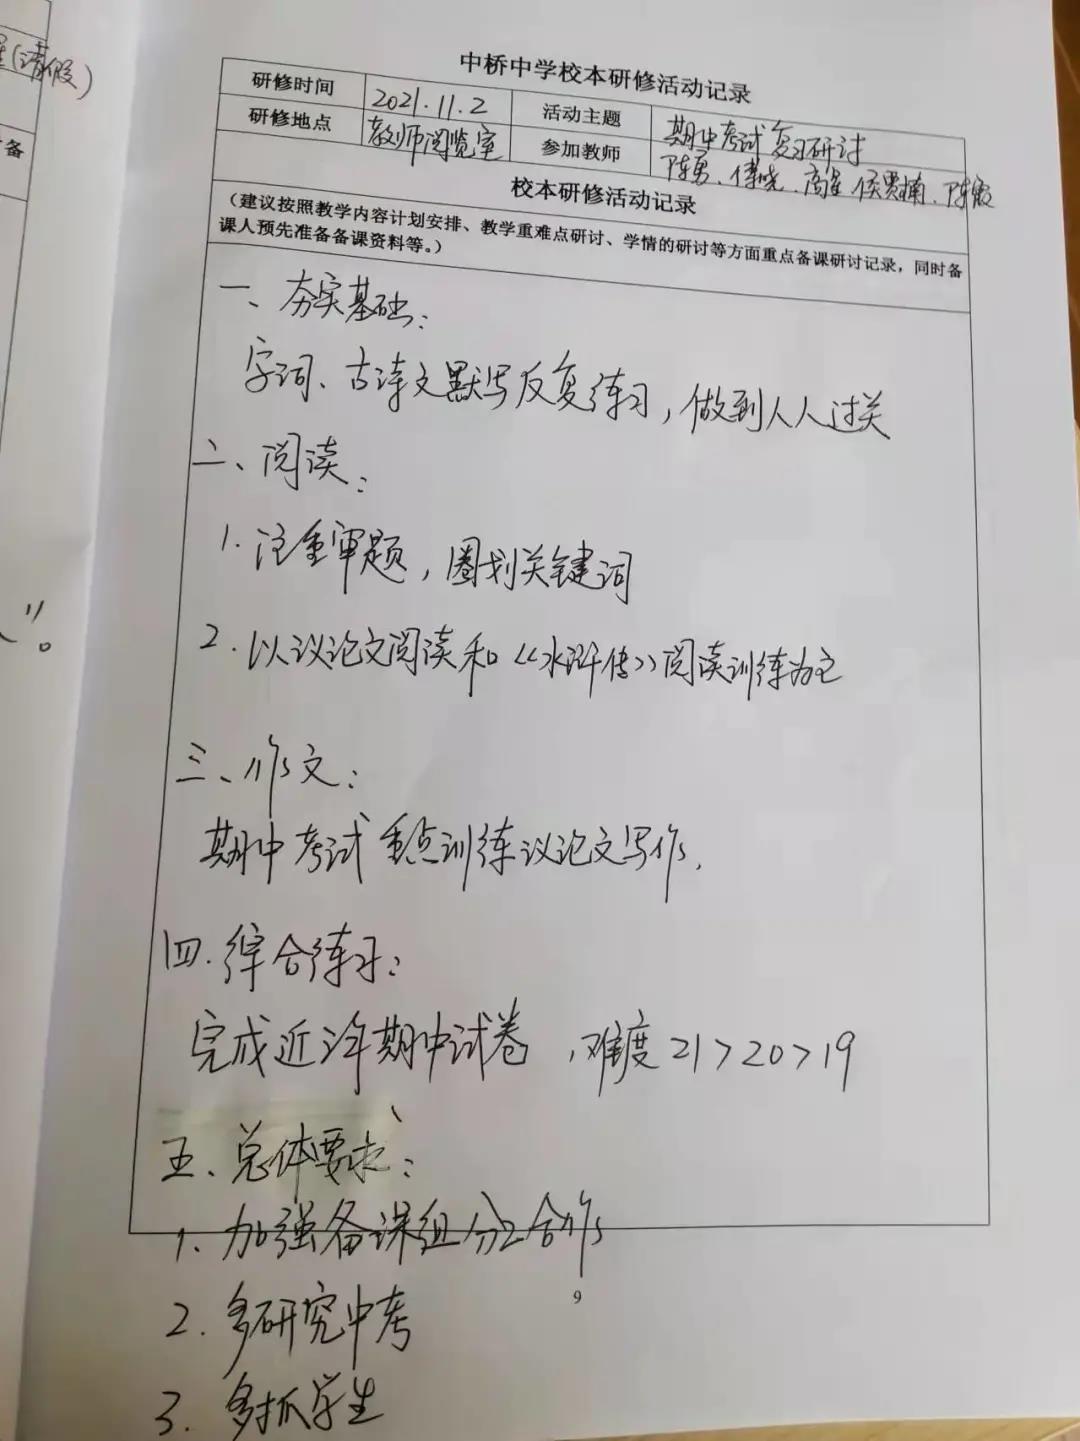 (请假)
备
”。
中桥中学校本研修活动记录
研修时间 2021.11.2 活动主题 期中考试复习研讨
研修地点 教师阅览室 参加教师 陈勇、傅晓、高星、侯贤楠、陈霞
校本研修活动记录
（建议按照教学内容计划安排、教学重难点研讨、学情的研讨等方面重点备课研讨记录，同时备
课人预先准备备课资料等。）
一、夯实基础：
字词、古诗文默写反复练习，做到人人过关
二、阅读：
1. 注重审题，圈划关键词
2. 以议论文阅读和《水浒传》阅读训练为主
三、作文：
期中考试重点训练议论文写作.
四. 综合练习：
完成近年期中试卷，难度21>20>19
五、总体要求：
1. 加强备课组分工合作
9
2. 多研究中考
3. 多抓学生